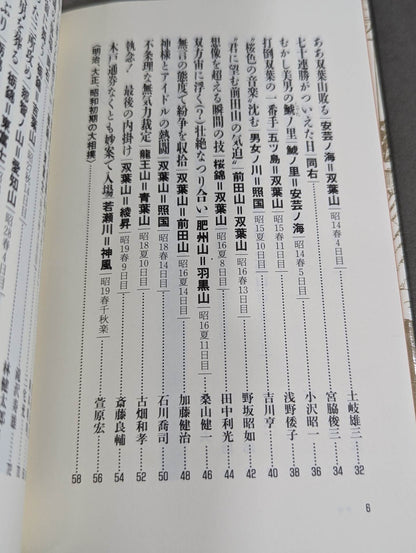 ああ双葉山敗る〔安芸ノ海＝双葉山｜昭14春4日目〕土岐雄三 32
七十連勝がついえた日〔同右〕宮脇俊三 34
むかし美男の鯱ノ里〔鯱ノ里＝安芸ノ海｜昭14春5日目〕小沢昭一 36
打倒双葉の一番手〔五ツ島＝双葉山｜昭15春11日目〕浅野倭子 38
“桜色”の音楽〟沈む〔男女ノ川＝照国｜昭15夏10日目〕吉川亨 40
“君に望む前田山の気迫〟〔前田山＝双葉山｜昭16春13日目〕野坂昭如 42
想像を超える瞬間の技〔桜錦＝双葉山｜昭16夏8日目〕田中利光 44
双方宙に浮く合い壮絶なつり合い〔肥州山＝羽黒山｜昭16夏11日目〕桑山健一 46
無言の態度で紛争を収拾〔双葉山＝前田山｜昭16夏14日目〕加藤健治 48
神様とアイドルの熱闘〔双葉山＝照国｜昭18春14日目〕石川喬司 50
不条理な無気力裁定〔龍王山＝青葉山｜昭18夏10日目〕古畑和孝 52
執念！最後の内掛け〔双葉山＝綾昇｜昭19春9日目〕斎藤良輔 54
木戸通券なくとも妙案で入場〔若瀬川＝神風｜昭19春千秋楽〕萱原宏 56
〈明治、大正、昭和初期の大相撲〉 58
6